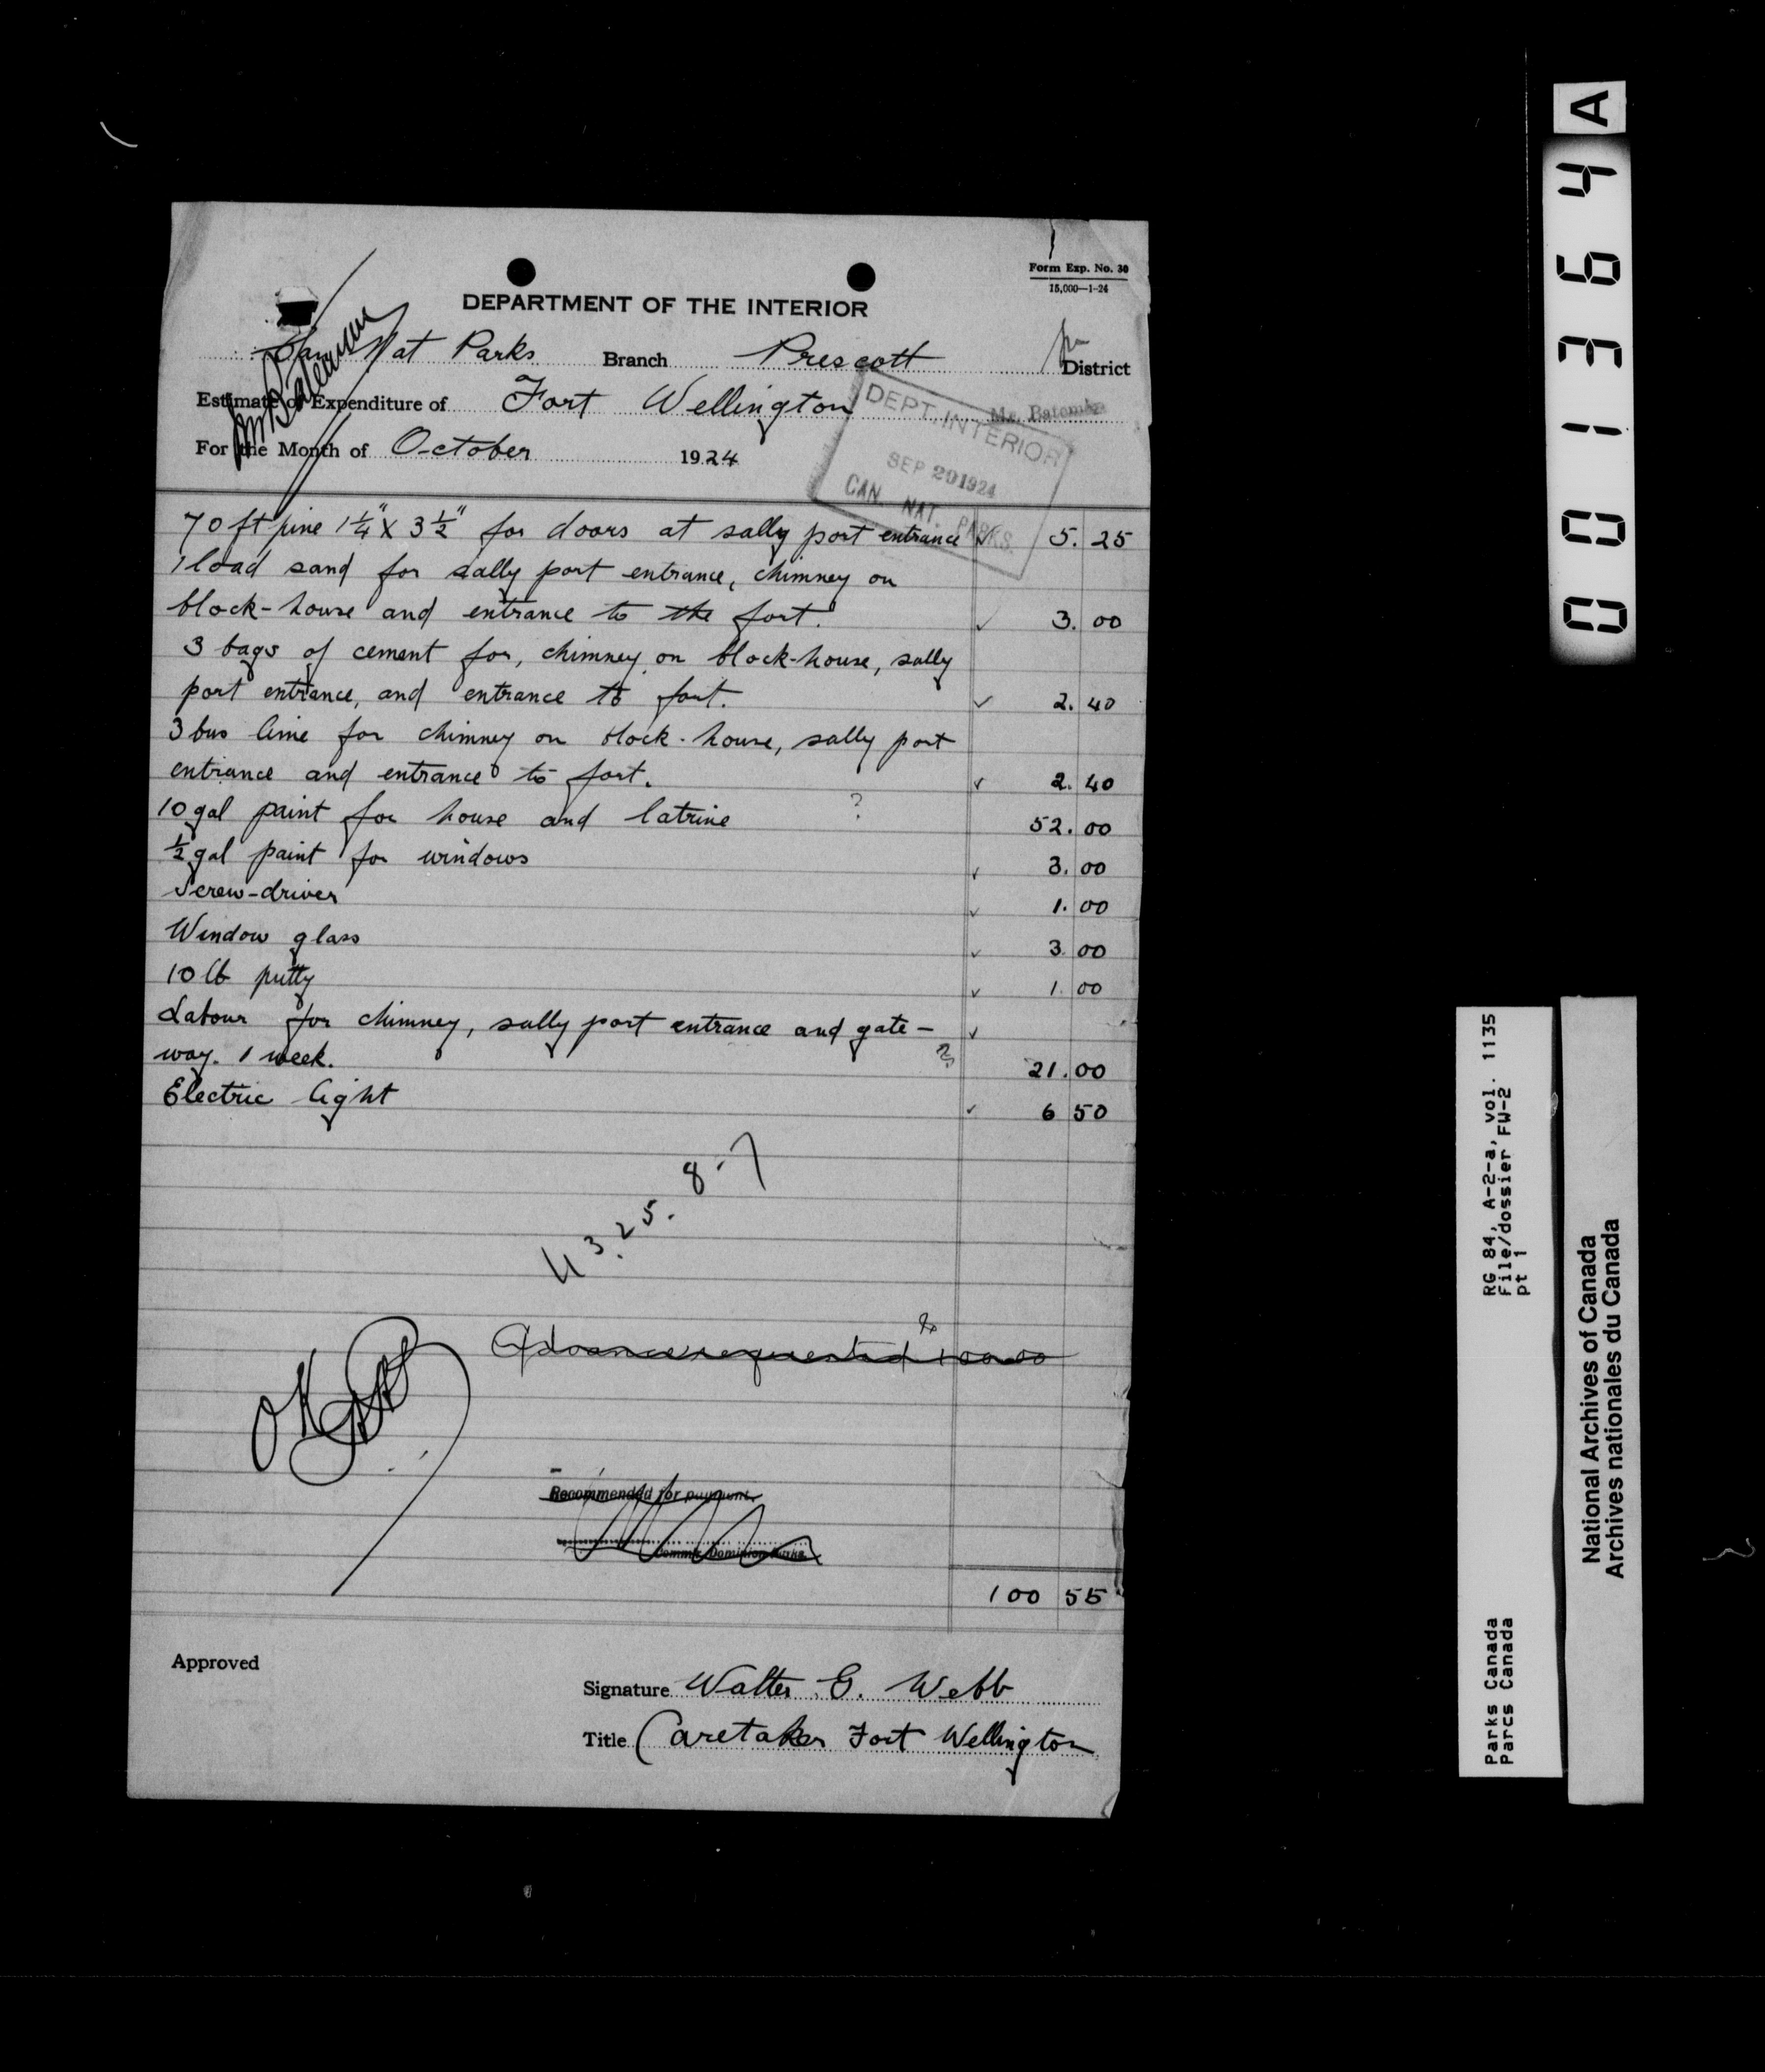 Form Exp. No. 30
15,000—1-24
DEPARTMENT OF THE INTERIOR
Can Nat Parks Branch Prescott District
Estimate of Expenditure of Fort Wellington
Mr. Bateman
For the Month of October 1924
DEPT. INTERIOR
SEP 29 1924
CAN. NAT. PARKS.
70 ft pine 1 1/4" X 3 1/2" for doors at sally port entrance ✓ 5.25
1 load sand for sally port entrance, chimney on
block-house and entrance to the fort. ✓ 3.00
3 bags of cement for, chimney on block-house, sally
port entrance, and entrance to fort. ✓ 2.40
3 bus lime for chimney on block-house, sally port
entrance and entrance to fort. ✓ 2.40
10 gal paint for house and latrine ? 52.00
1/2 gal paint for windows ✓ 3.00
Screw-driver ✓ 1.00
Window glass ✓ 3 00
10 lb putty ✓ 1 00
Labour for chimney, sally port entrance and gate- ✓
way. 1 week. ? 21.00
Electric light ✓ 6 50
43.25. 8-7
Advance requested 100.00
OK
Recommended for payment.
Commr. Dominion Parks
100 55
Approved
Signature Walter G. Webb
Title Caretaker Fort Wellington
001364 A
RG 84, A-2-a, vol. 1135
File/dossier FW-2
pt 1
Parks Canada
Parcs Canada
National Archives of Canada
Archives nationales du Canada